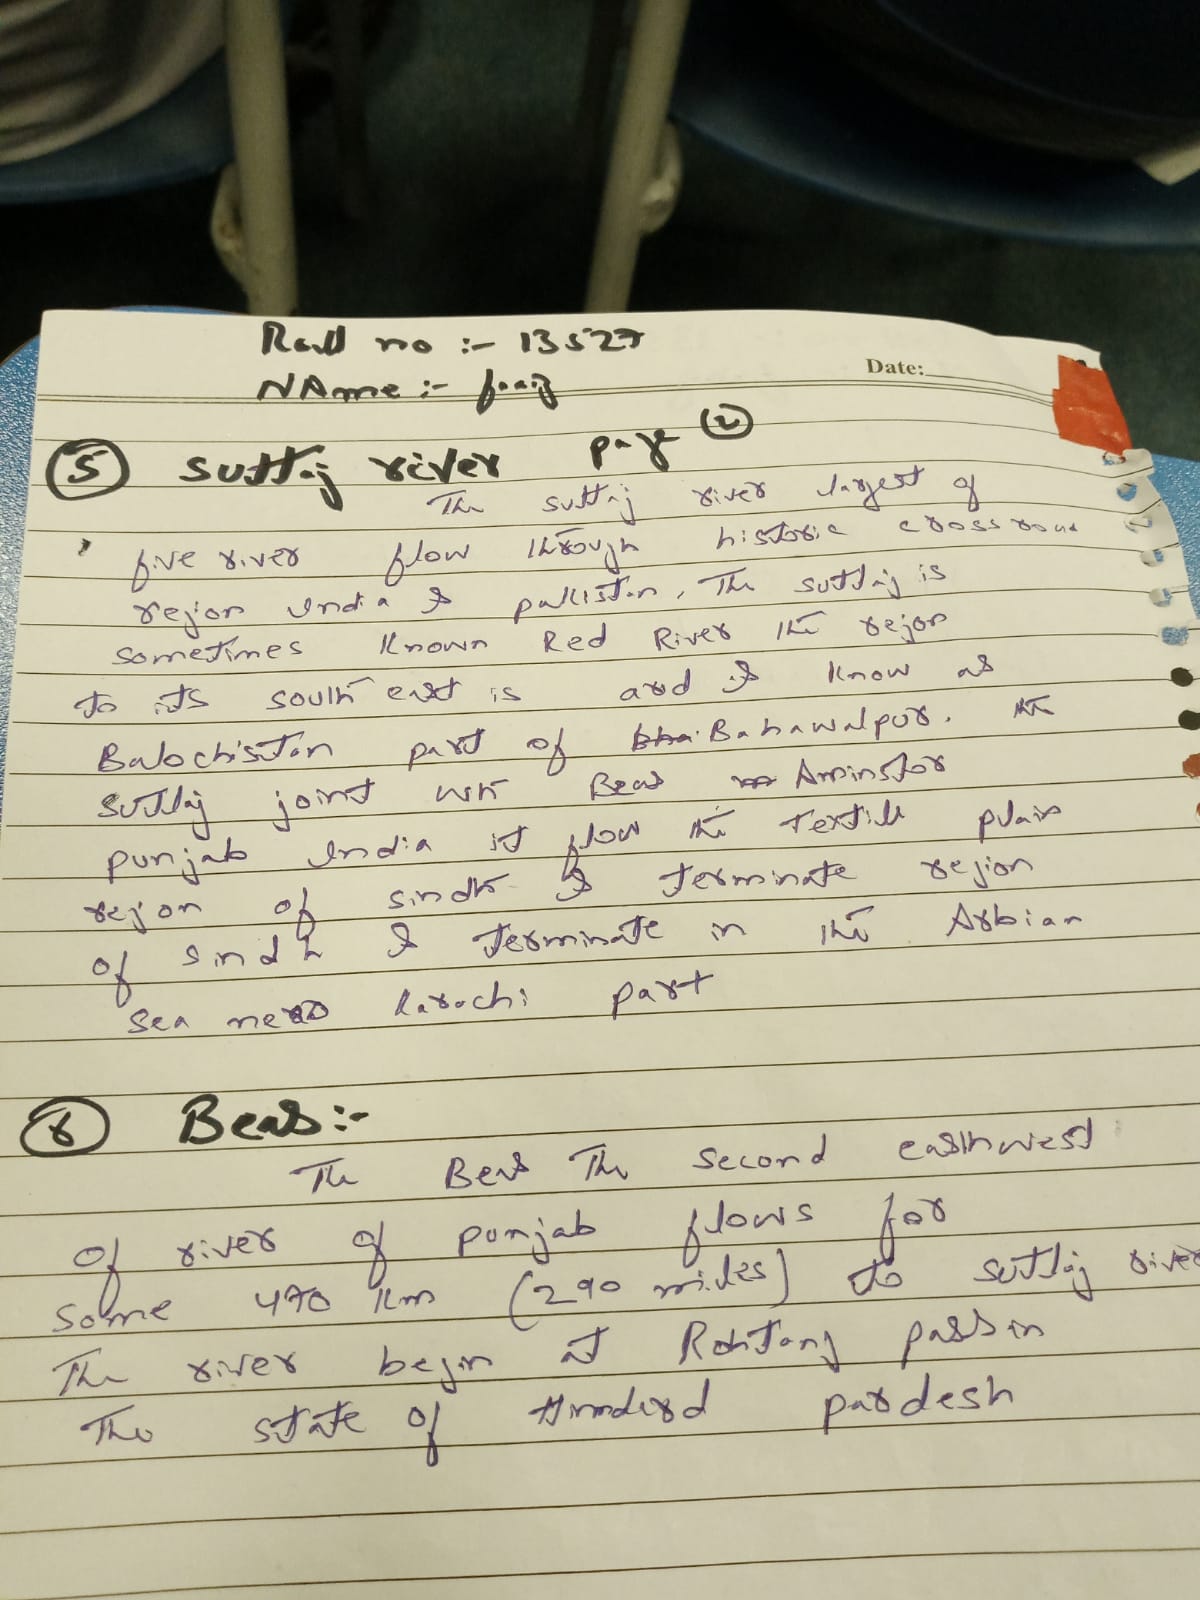 Roll no :- 13527
Date:
NAme :- faaiz
page 2
5 Suttlaj river
The suttlaj river largest of
five river flow through historic crossroad
rejon India & pakistan, The suttlaj is
sometimes Known Red River the rejon
to its south east is arid & Know as
Balochistan part of Bahawalpur. the
suttlaj joint with Beas Aminstor
punjab India it flow the Textile plain
rejon of sindh & terminate rejion
of sindh & terminate in the Arbian
Sea near karachi part
6 Beas:-
The Beas The second easthwest
Of river of punjab flows for
some 470 Km (290 miles) to suttlaj river
The river begin at Rohtang pass in
The state of pardesh